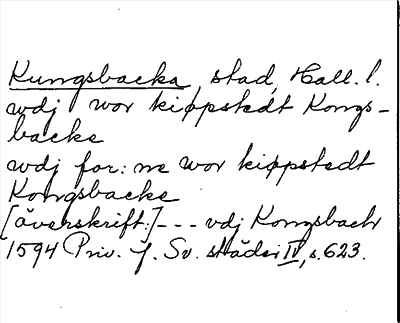 Kungsbacka, stad, Hall. l.
wdj wor kiøpstedt Kongs-
backe
wdj for:ne wor kiøpstedt
Kongsbacke
[överskrift:] --- vdj Kongsbach
1594 Priv. f. Sv. städer IV, s. 623.